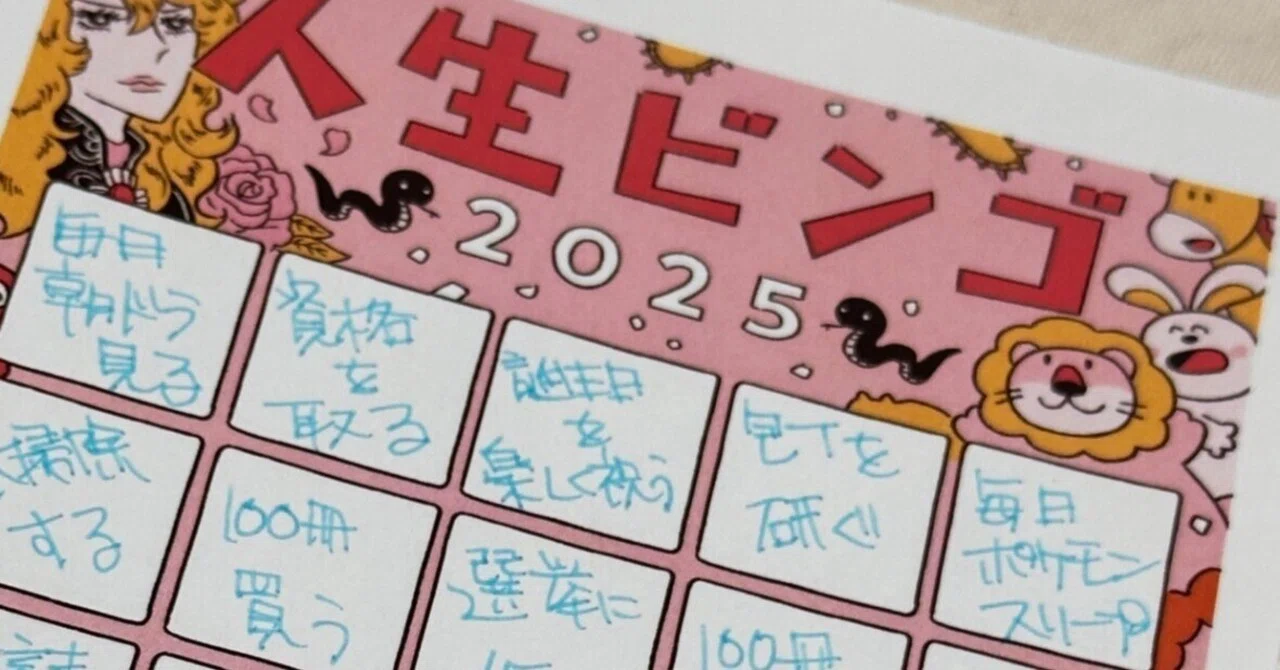 人生ビンゴ
2025
毎日
朝ドラ
見る
資格
を
取る
誕生日
を
楽しく祝う
包丁を
研ぐ
毎日
ポケモン
スリープ
掃除
する
100冊
買う
選挙に
100冊